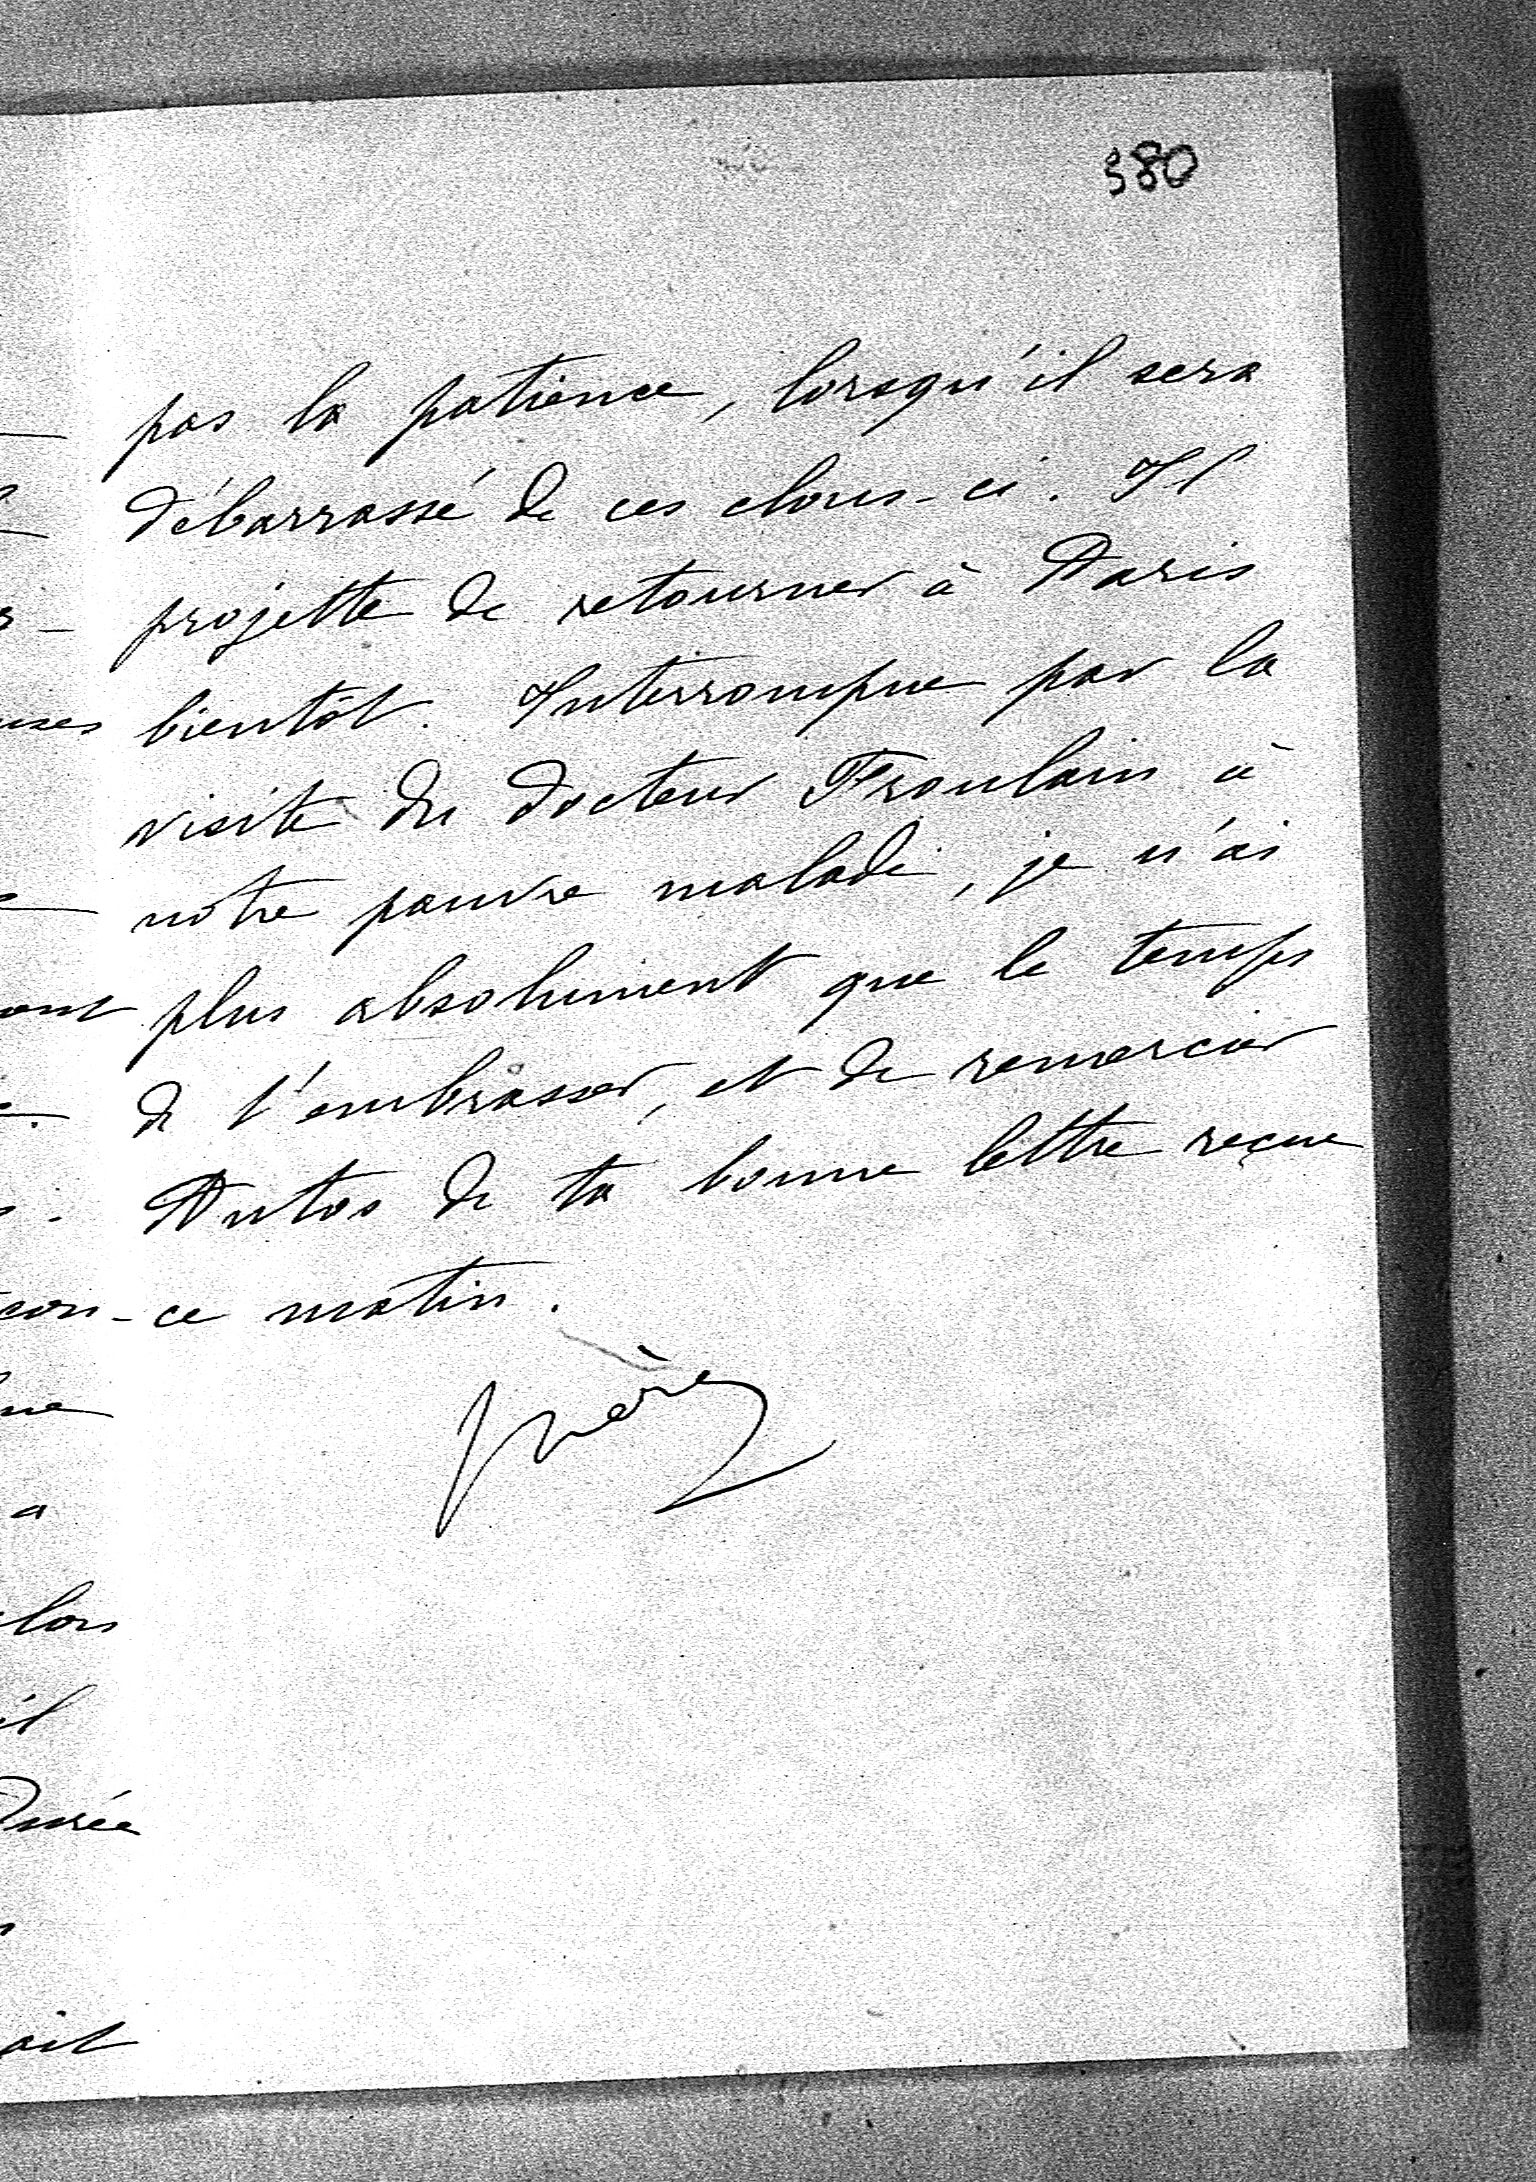 580
pas la patience, lorsqu'il sera
débarrassé de ces clous-ci. Il
projette de retourner à Paris
bientôt. Interrompue par la
visite du docteur Froulain à
notre pauvre malade, je n'ai
plus absolument que le temps
de t'embrasser, et de remercier
de ta bonne lettre reçue
ce matin.
uses
ont
con-
a
lors
il
Durée
ait